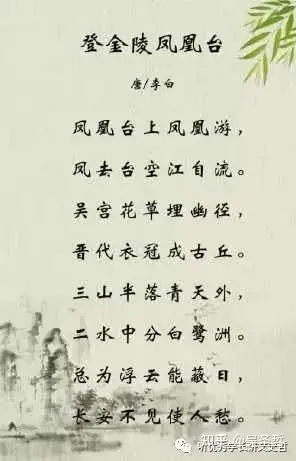 登金陵凤凰台
唐/李白
凤凰台上凤凰游，
凤去台空江自流。
吴宫花草埋幽径，
晋代衣冠成古丘。
三山半落青天外，
二水中分白鹭洲。
总为浮云能蔽日，
长安不见使人愁。
知乎